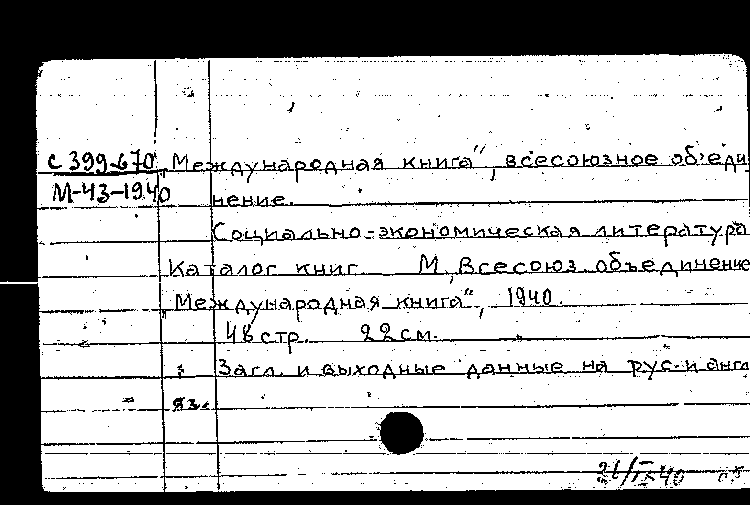 С 399-670 „Международная книга", всесоюзное объеди
М-43-1940 нение.
Социально-экономическая литература
Каталог книг М, Всесоюз. объединение
„Международная книга", 1940.
48 стр. 22 см.
Загл. и выходные данные на рус. и англ
яз.